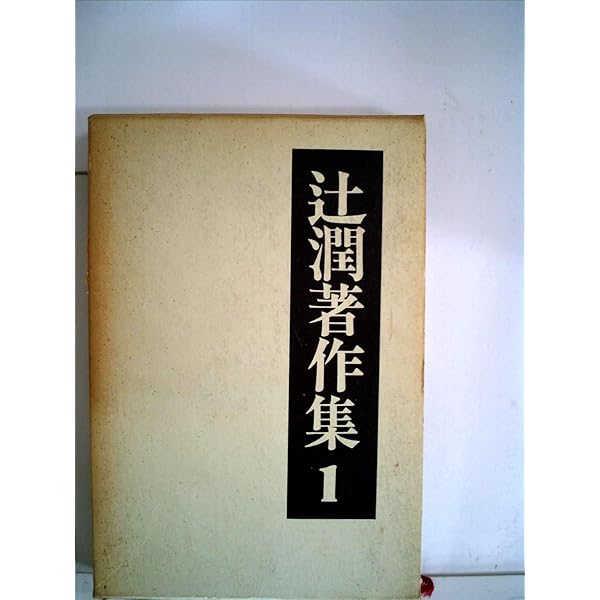 辻潤著作集1